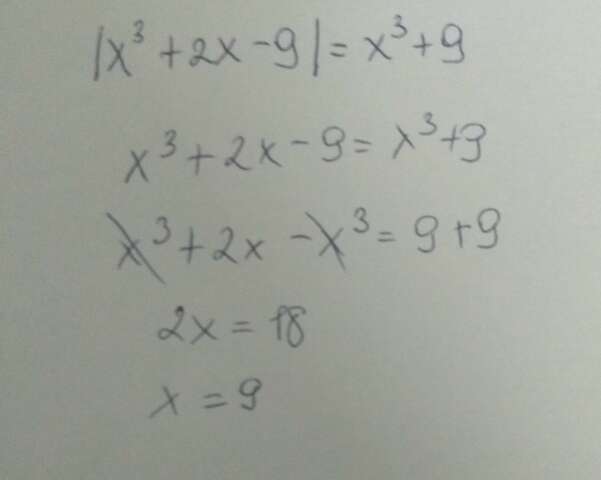 |x³ + 2x - 9| = x³ + 9
x³ + 2x - 9 = x³ + 9
x³ + 2x - x³ = 9 + 9
2x = 18
x = 9